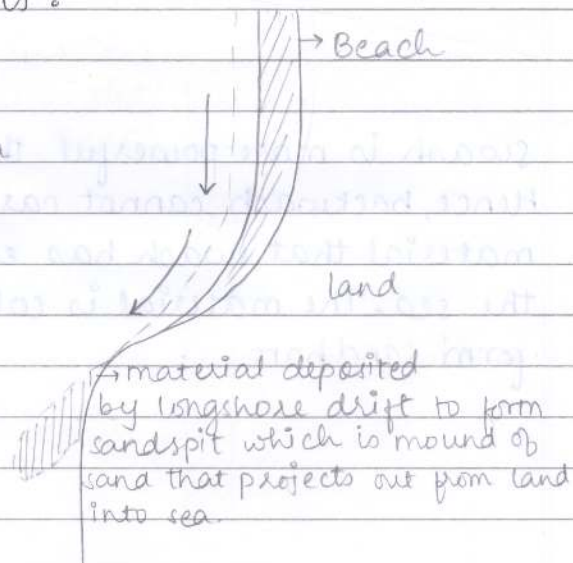 → Beach
land
→ material deposited
by longshore drift to form
sandspit which is mound of
sand that projects out from land
into sea.